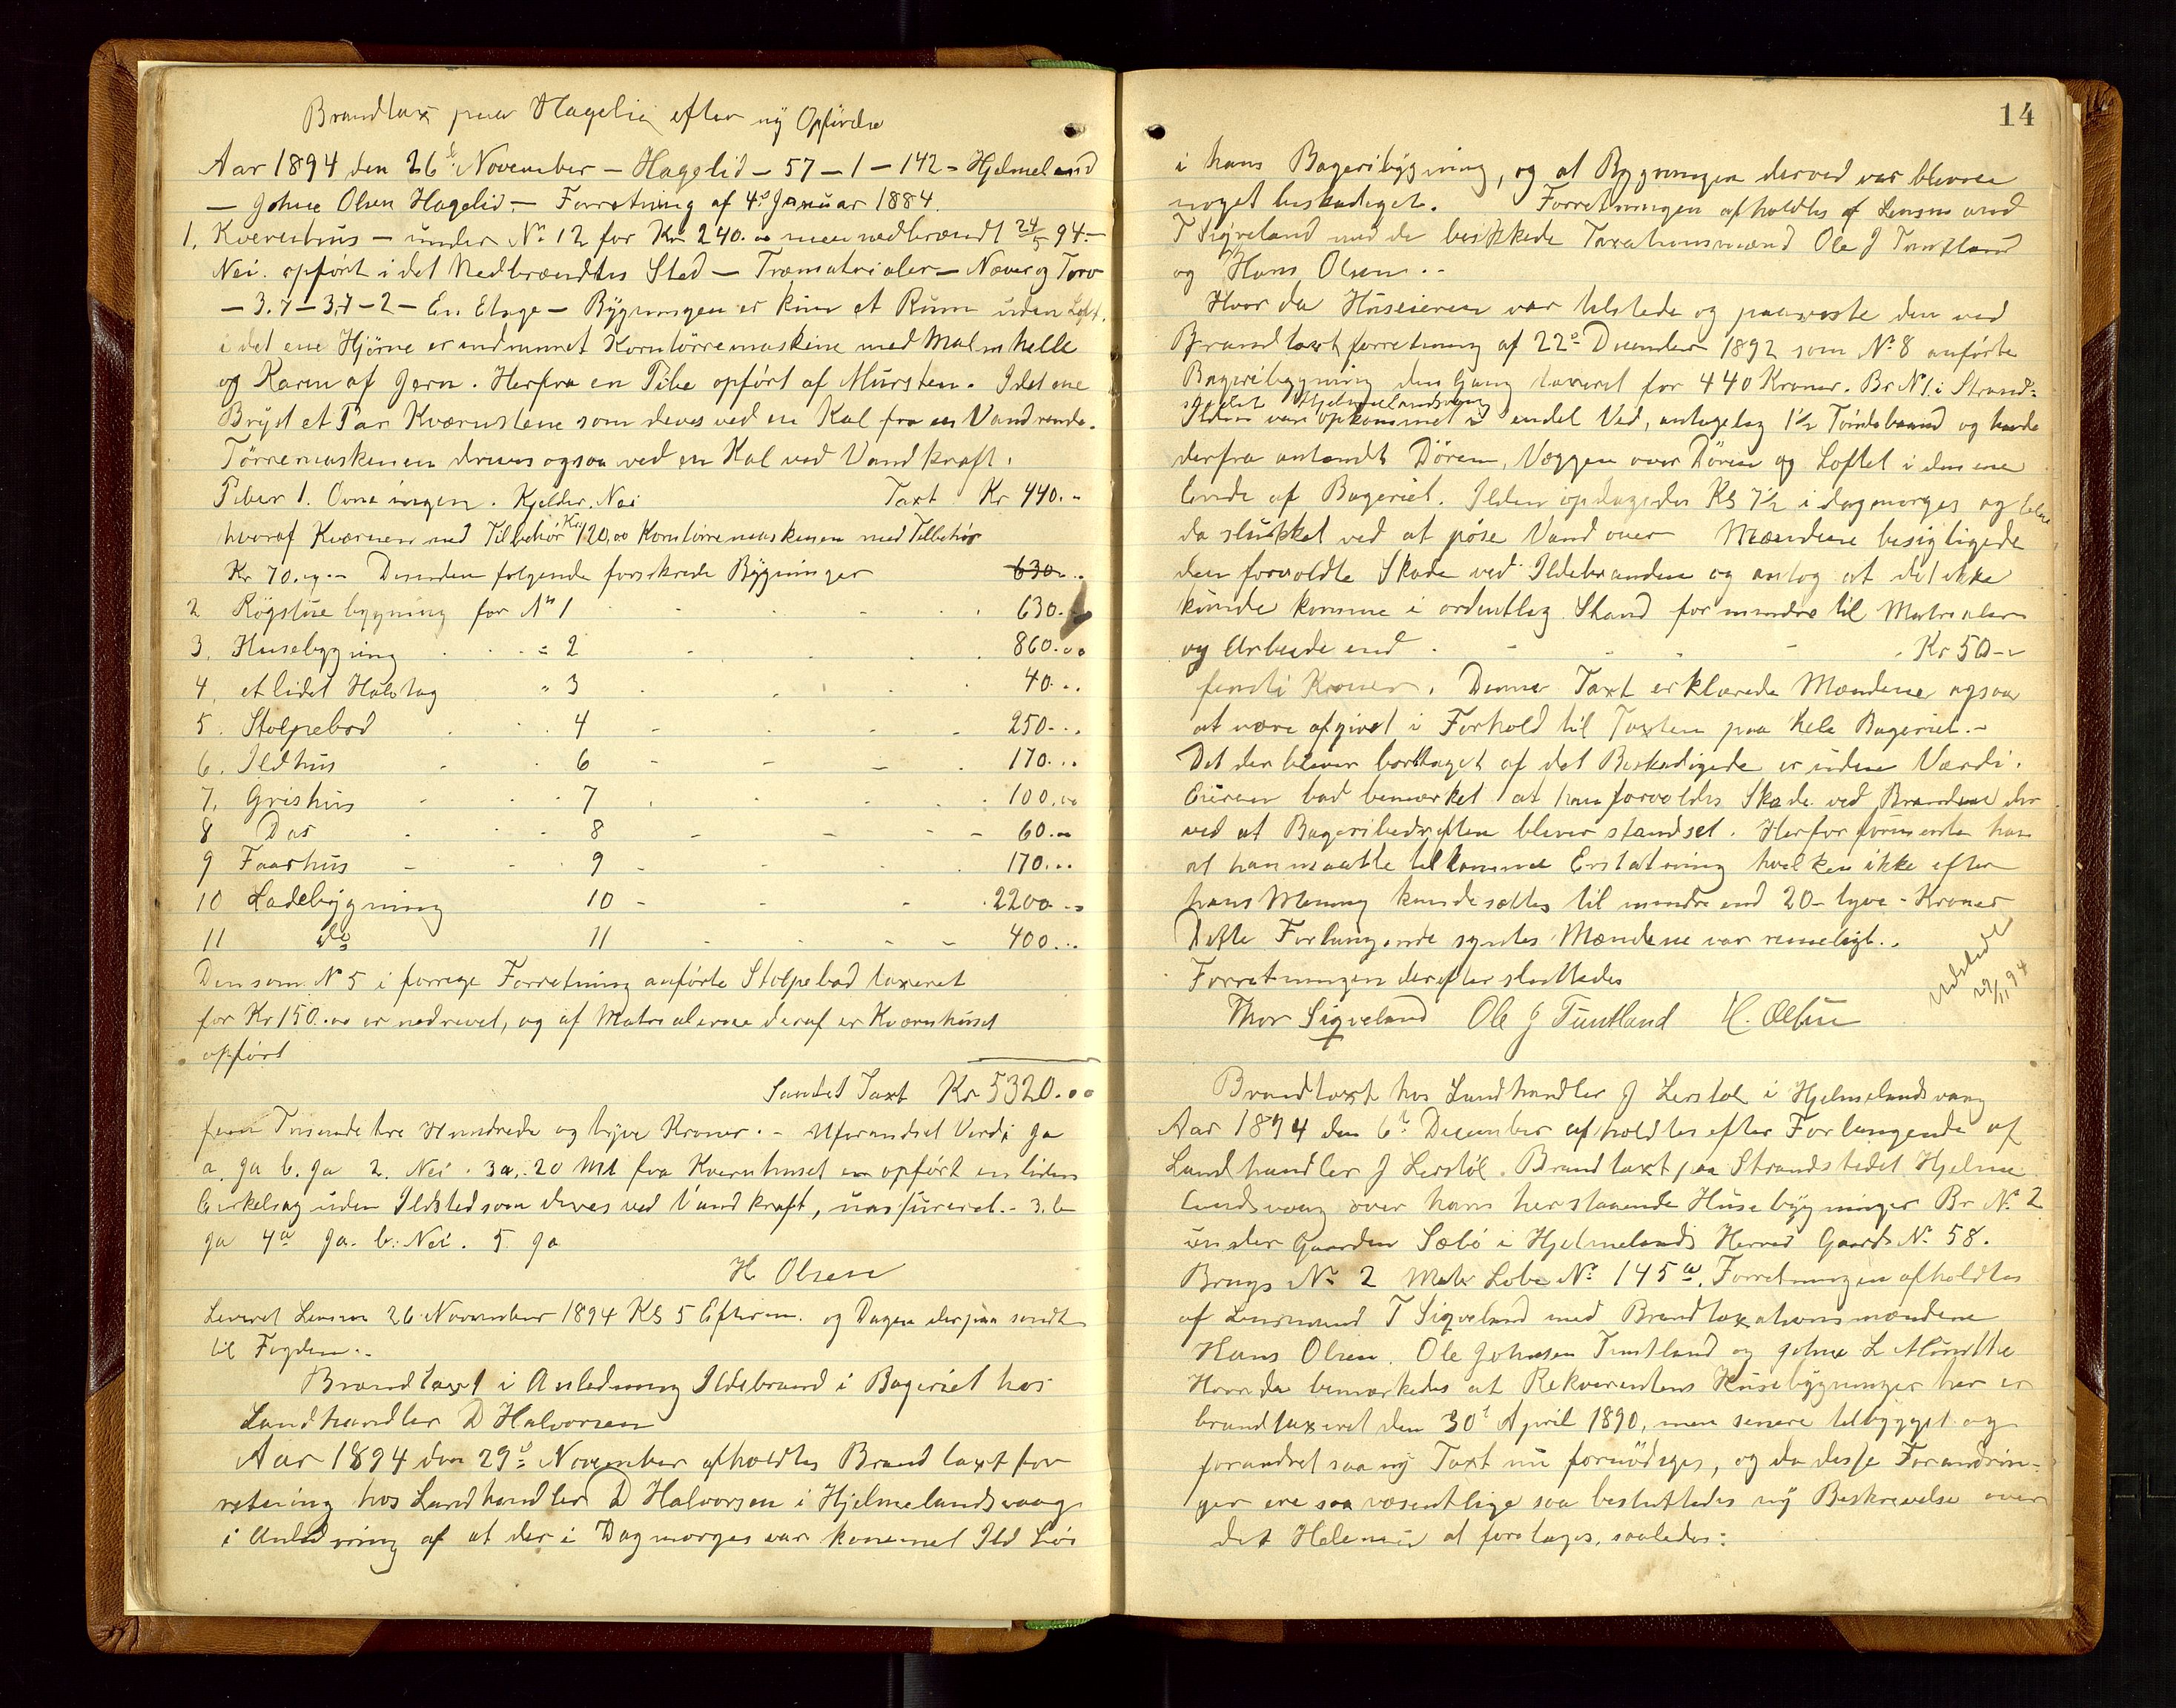 Brandtax paa Hagelia efter ny Opförelse
Aar 1894 den 26d November - Hagelid - 57 - 1 - 142 - Hjelmeland
- Johne Olsen Hagelid. - Forretning af 4d Januar 1884.
1. Kvernhus - under No 12 for Kr 240.00 men nedbrændt 24/5 94. -
Nei. opført i det Nedbrændtes Sted - Træmaterialer - Næver og Torv
- 3.7 - 3,7 - 2 - En Etage - Bygningen er kun et Rum uden Loft.
i det ene Hjörne er indmuret Korntörremaskine med Malmhelle
og Karm af Jern. Herfra en Pibe opført af Mursten. I det ene
Bryst et Par Kværnstene som deves ved en Kal fra en Vandrende.
Törremaskinen drives ogsaa ved en Kal ved Vandkraft.
Piber 1. Ovne ingen. Kjelder. Nei Taxt Kr 440. -
hvoraf Kvernen med Tilbehör Kr 120,00 Korntörremaskinen med Tilbehör
Kr 70. - Desuden folgende forsikrede Bygninger 630 -
2 Rögstue bygning for No 1 630. -
3. Husebygning " 2 860.00
4. et lidet Halvtag " 3 40. -
5. Stolpebod 4 250. -
6. Ildhus 6 170. -
7. Grishus 7 100.00
8 Das 8 60. -
9 Faarhus 9 170. -
10 Ladebygning 10 2200. -
11 do 11 400. -
Den som N 5 i forrige Forretning anførte Stolpebod taxeret
for Kr 150.00 er nedrevet, og af Materialerne deraf er Kværnhuset
opført
Samlet Taxt Kr 5320.00
fem Tusende tre Hundrede og tyve Kroner. - Uforandret Verdi Ja
a. Ja b. Ja 2. Nei. 3a. 20 Mt fra Kvernhuset er opført en liden
Cirkelsag uden Ildsted som drives ved Vandkraft, uassureret. - 3. b
Ja 4a Ja. b. Nei. 5. Ja
H Olsen
Leveret Lensm 26 November 1894 Kl 5 Efterm. og Dagen derpaa sendt
til Fogden. -
Brandtaxt i Anledning Ildebrand i Bageriet hos
Landhandler D Halvorsen
Aar 1894 den 29d November afholdtes Brandtaxt for
retning hos Landhandler D Halvorsen i Hjelmelandsvaag
i Anledning af at der i Dag morges var kommet Ild løs
14
i hans Bageribygning, og at Bygningen derved var bleven
noget beskadiget. Forretningen afholdtes af Lensmand
T Sigveland med de beskikkede Taxationsmænd Ole J Tuntland
og Hans Olsen. -
Hvor da Huseieren var tilstede og paaviste den ved
Brandtaxtforretning af 22d December 1892 som No 8 anførte
Bageribygning den Gang taxeret for 440 Kroner. Br N 1 i Strand-
stedet Hjelmelandsvaag
Ilden var opkommet i endel Ved, antagelig 1 1/2 Töndebaand og havde
derfra antændt Dören, Væggen over Dören og Loftet i den ene
Ende af Bageriet. Ilden opdagedes Kl 7 1/2 i dagmorges og blev
da slukket ved at pöse Vand over Mændene besigtigede
den forvoldte Skade ved Ildebranden og antog at det ikke
kunde komme i ordentlig Stand for mindre til Materialer
og Arbeide end Kr 50 -
femti Kroner. Denne Taxt erklærede Mændene ogsaa
at være afgivet i Forhold til Taxten paa hele Bageriet. -
Det der bliver borttaget af det Beskadigede er uden Værdi.
Eieren bad bemærket at han forvoldes Skade ved Branden der
ved at Bageribedriften bliver standset. Herfor formente han
at han maatte tilkomme Erstatning hvilken ikke efter
hans Mening kunde sættes til mindre end 20 - tyve - Kroner
Dette Forlangende syntes Mændene var rimeligt. -
Forretningen derefter sluttedes
Udstedt 29/11 94
Thor Sigveland Ole J Tuntland H. Olsen
Brandtaxt hos Landhandler J Lerstøl i Hjelmelandsvaag
Aar 1894 den 6t December afholdtes efter Forlangende af
Landhandler J Lerstöl Brandtaxt paa Strandstedet Hjelme
landsvaag over hans herstaaende Husebygninger Br No 2
under Gaarden Sæbö i Hjelmelands Herred Gaards No 58.
Brugs No 2 Matr Löbe No 145a. Forretningen afholdtes
af Lensmand T Sigveland med Brandtaxationsmændene
Hans Olsen. Ole Johnsen Tuntland og Johne L Mundthe
Hvor da bemærkedes at Rekvirentens Husebygninger her er
brandtaxeret den 30t April 1890, men senere tilbygget og
forandret saa ny Taxt nu fornödiges, og da disse Forandrin-
ger ere saa væsentlige saa besluttedes ny Beskrivelse over
det Hele nu at foretages. saaledes: